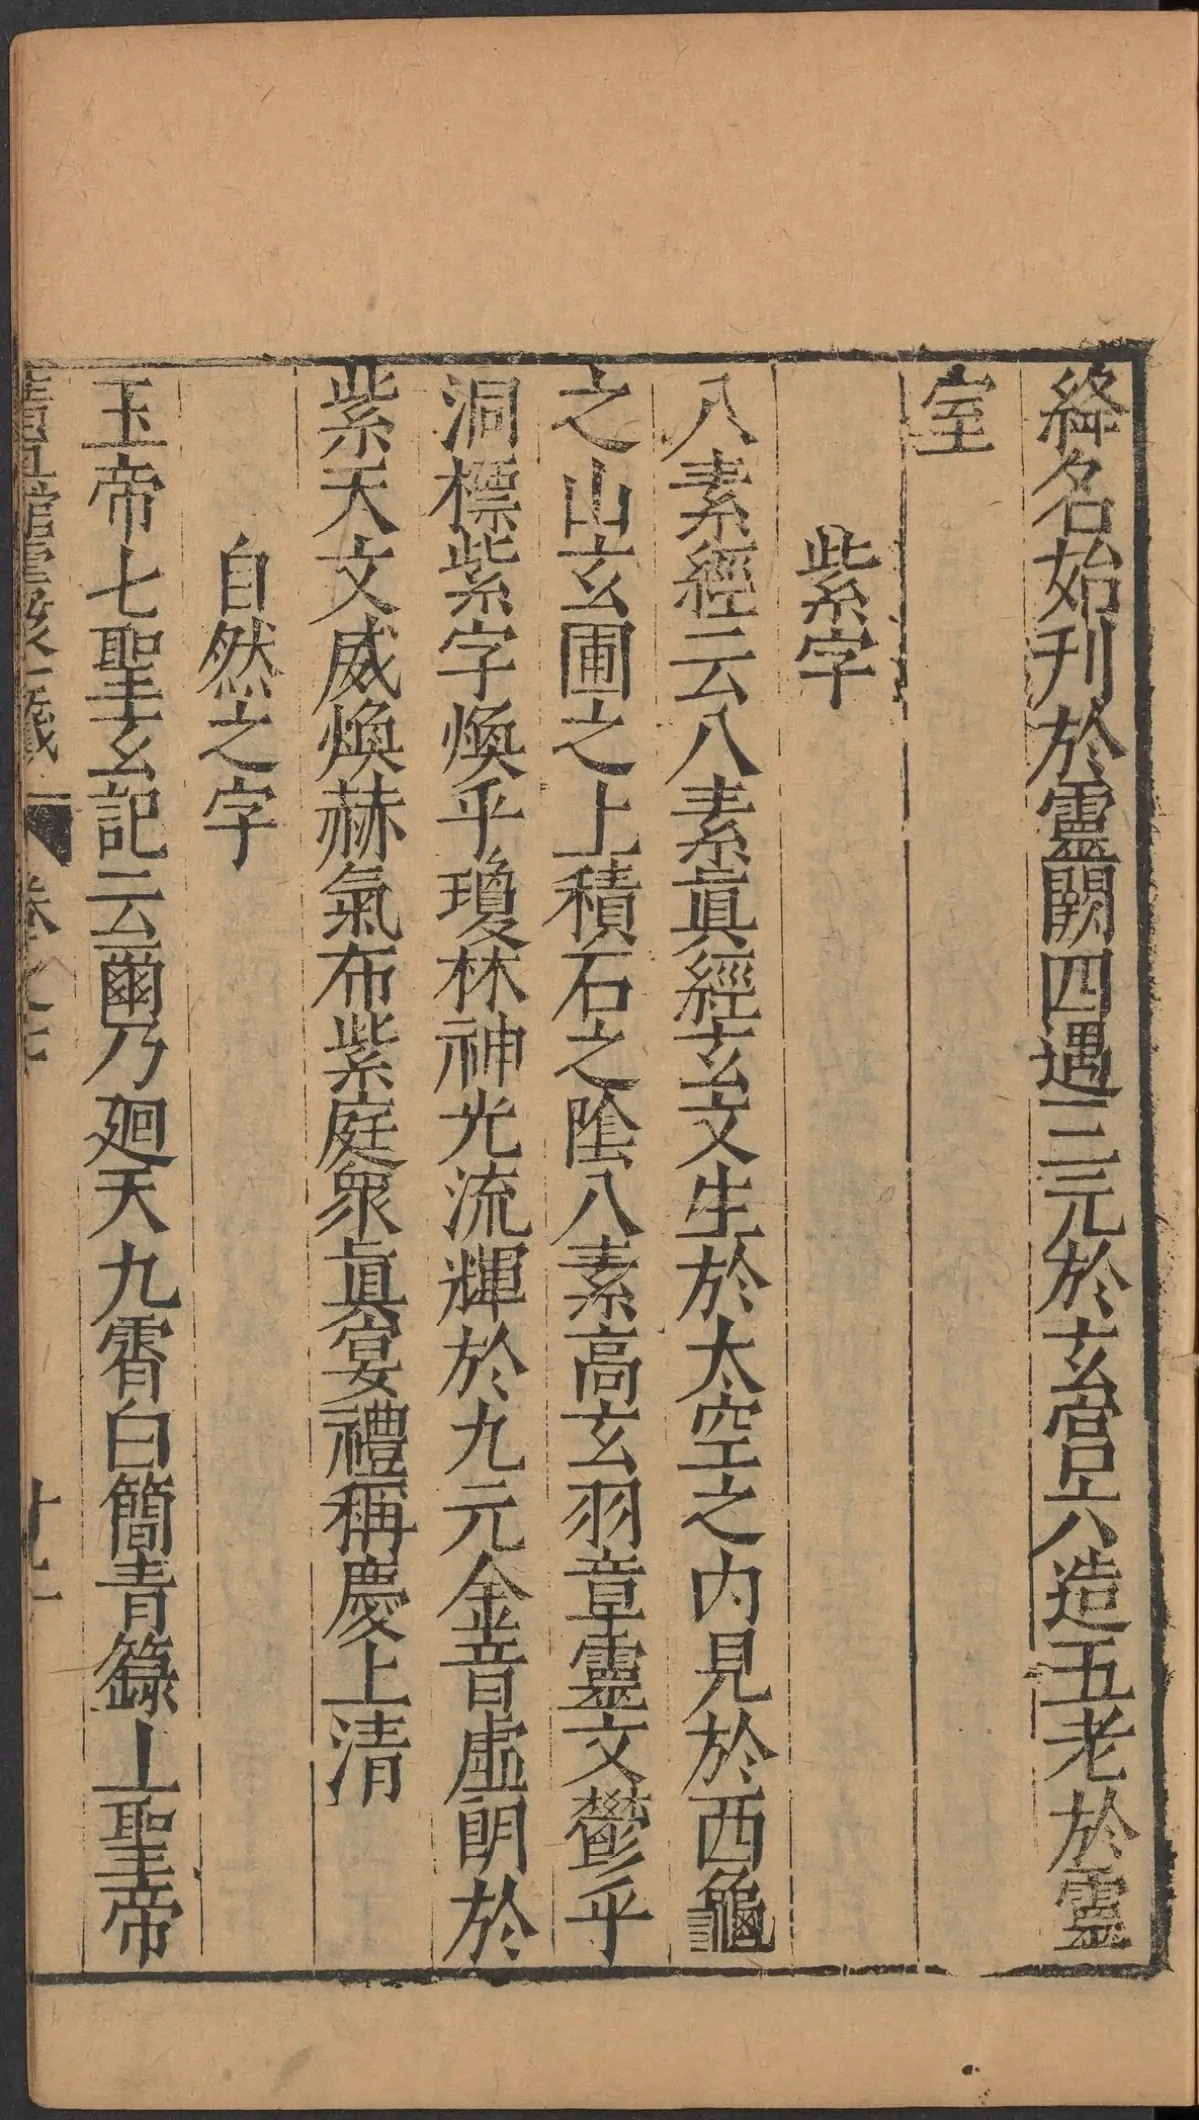 絳名始刋於靈闕四遇三元於玄宮六造五老於靈
室
紫字
八素經云八素眞經玄文生於太空之内見於西龜
之山玄圃之上積石之陰八素高玄羽章靈文鬱乎
洞標紫字煥乎瓊林神光流輝於九元金音虛朗於
紫天文威煥赫氣布紫庭衆眞宴禮稱慶上清
自然之字
玉帝七聖玄記云爾乃廻天九霄白簡青籙上聖帝